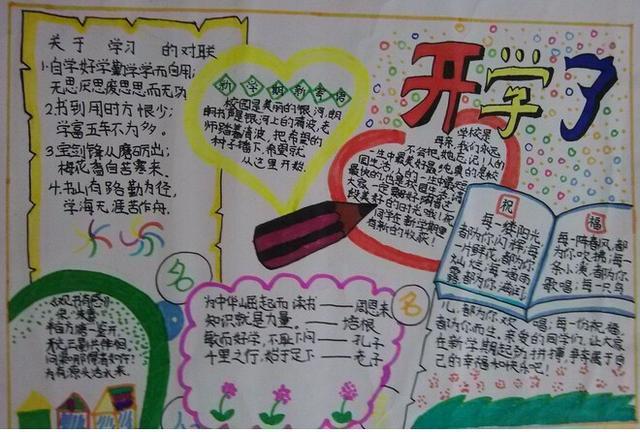 关于 学习 的对联
1.自学好学勤学学而自用;
无思厌思废思思而无功
2.书到用时方恨少;
学富五车不为多。
3.宝剑锋从磨砺出;
梅花香自苦寒来.
4.书山有路勤为径,
学海无涯苦作舟.
新学期新学语
校园是美丽的银河,朗
朗书声是银河上的清波,老
师踏着清波,把希望的
种子播下,希望就
从这里开始.
开学了
学校是
母亲,我们永远
不会把她忘记!人的
一生中最美好最纯真的是校
园生活,人的一生中最
快的,也是校园生活,请
大家一定要好好
段美好的时光哦!祝
同学在新学期里
有新的收获!
祝
每一缕阳光
都为你闪耀,每
一片鲜花,都为你
灿烂,每一滴雨
露都为你
福
每一阵春风,都
为你吹拂,每一
条小溪,都为你
歌唱,每一只鸟
儿,都为你欢 唱;每一份祝福,
都为你而生,亲爱的同学们,让大家
在新学期起的拼搏,争来属于自
己的幸福和快乐吧!
名
名
《观书有感》
宋 朱熹
半亩方塘一鉴开,
天光云影共徘徊.
问渠那得清如许?
为有源头活水来.
为中华崛起而读书——周恩来
知识就是力量。——培根
敏而好学,不耻下问——孔子
千里之行,始于足下——老子